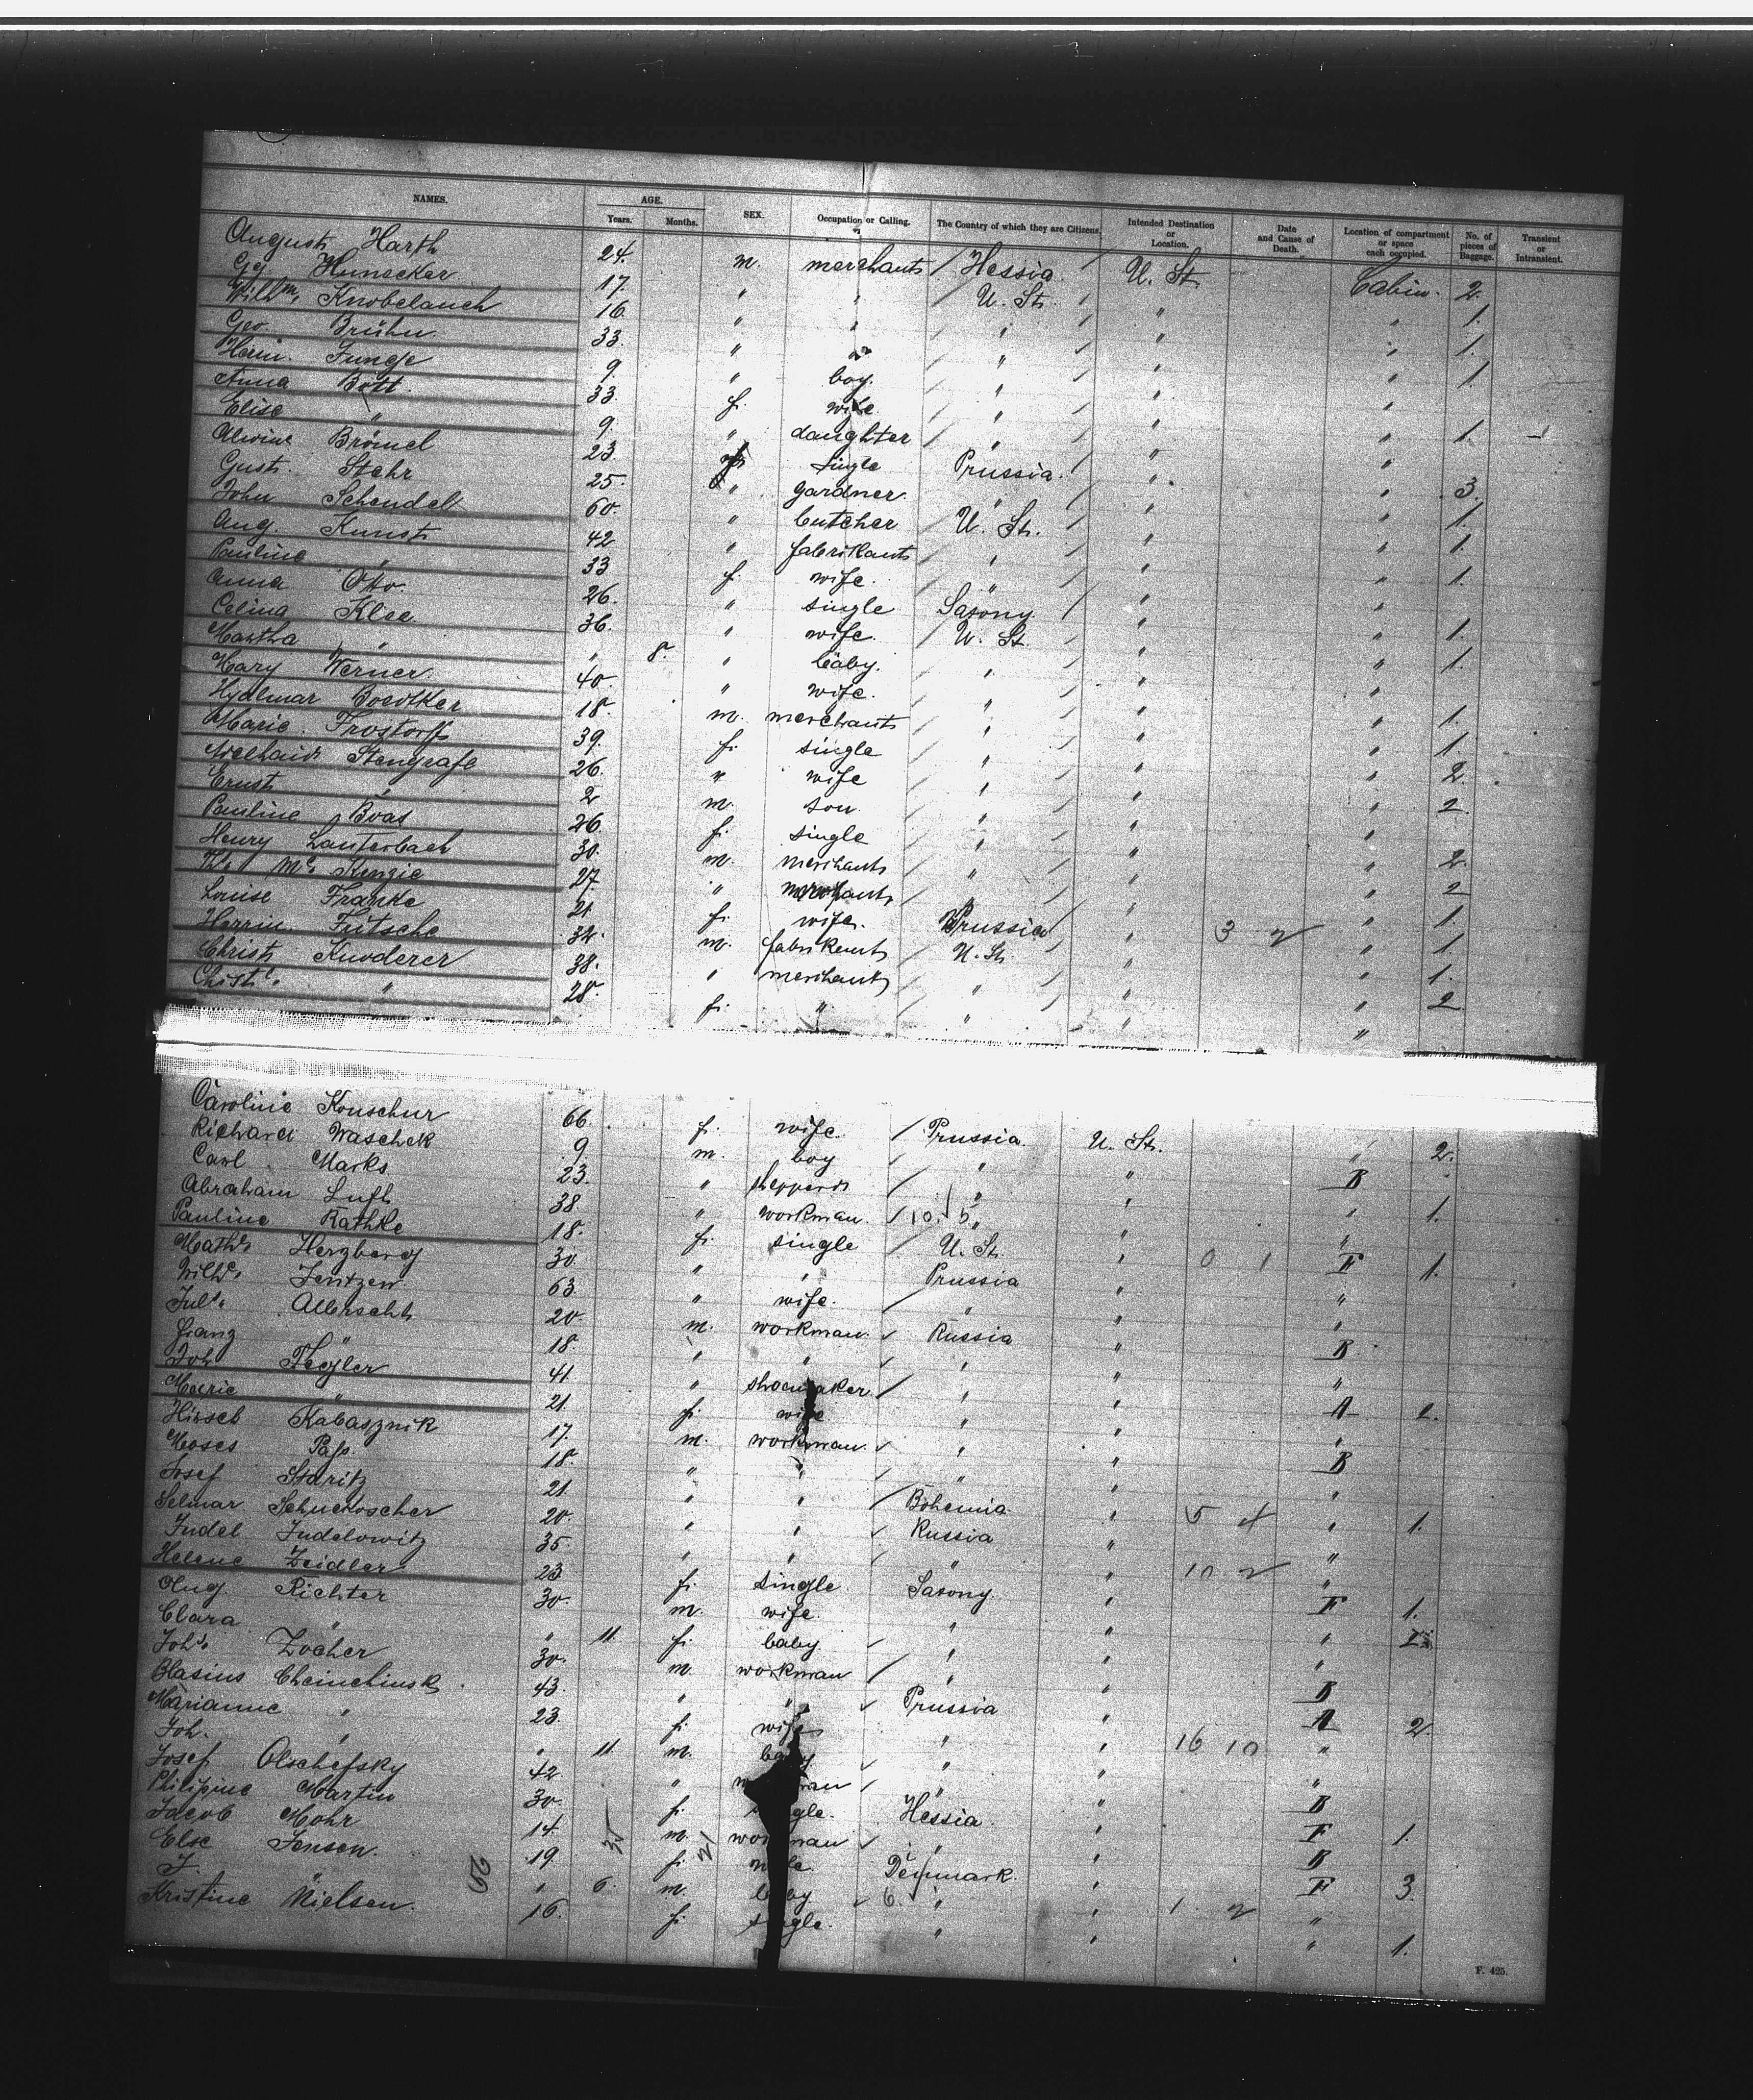 NAMES. AGE. Years. Months. SEX. Occupation or Calling. The Country of which they are Citizens. Intended Destination or Location. Date and Cause of Death. Location of compartment or space each occupied. No. of pieces of Baggage. Transient or Intransient.
August Harth 24. m. merchant Hessia U. St. Cabin. 2.
Hunecker 17. " " U. St. " " 1.
Wilhm. Knobelauch 16. " " " " " 1.
Geo. Brühn 33. " " " " " 1.
Herm. Junge 9. " boy. " " "
Anna Bott. 33. f. wife " " " 1.
Elise " 9. " daughter " " "
Alwine Brömel 23. single Prussia. " " 3.
Gust. Stehr 25. " gardner. " " " 1.
John Schendel 60. " butcher U. St. " " 1.
Aug. Kunst 42 " fabrikant " " " 1.
Pauline " 33 f. wife. " " "
Anna Otto. 26. " single Saxony " " 1.
Celina Klee 36. " wife. U. St. " " 1.
Martha " " 8. " baby. " " "
Mary Werner 40. " wife. " " " 1.
Hydlmar Boedtker 18. m. merchant " " " 1.
Marie Frostorff 39. f. single " " " 2.
Adelhaid Stengrafe 26. " wife " " " 2.
Ernst " 2 m. son. " " "
Pauline Boas 26. f. single " " " 2.
Henry Lauterbach 30. m. merchant " " " 2
Th. Mc Kenzie 27. " merchant " " " 1.
Louise Franke 21. f. wife. Prussia " 3 2 " 1.
Herrm. Fritsche 32. m. fabrikant U. St. " " 1.
Christ. Knoderer 38. " merchant " " " 2.
Christe. " 28. f. " " " "
Caroline Konschur 66. f. wife. Prussia U. St. " 2.
Richard Waschek 9. m. boy " " B
Carl Marks 23. " shepperd " " " 1.
Abraham Luft 38. " workman. 10. 5 " " "
Pauline Rathke 18. f. single U. St. " 0 1 F 1.
Mathe. Herzberg 30. " " Prussia " "
Wilhe. Jentzen 63. " wife. " " "
Juls. Albrecht 20. m. workman. Russia " B
Franz " 18. " " " " "
Joh. Tiegler 41. " shoemaker " " A 2.
Marie " 21. f. wife " " "
Hirsch Kabasznik 17. m. workman. " " B
Moses Pass 18. " " " " "
Josef Staritz 21. " " Bohemia. " 5 4 " 1.
Selmar 20. " " Russia " "
Judel Judelowitz 35. " " " " 10 2 "
Helene Zeidler 23 f. single Saxony. " F 1.
Aug. Richter 30. m. wife. " " "
Clara " " 11. f. baby. " " "
Johs. Zocher 30. m. workman " " B
Blasius 43. " " Prussia " A 2.
Marianne " 23. f. wife " " 16 10 "
Joh. " " 11. m. baby " " "
Josef Olschefsky 42. " workman " " B
Philipine Martin 30. f. single. Hessia. " F 1.
Jacob Mohr 14. m. workman " " B
Else Jensen. 19. f. Denmark. " F 3.
J. " " 6. m. baby 6. " " 1. 2 "
Kristine Nielsen. 16. f. single. " " " 1.
F. 425.